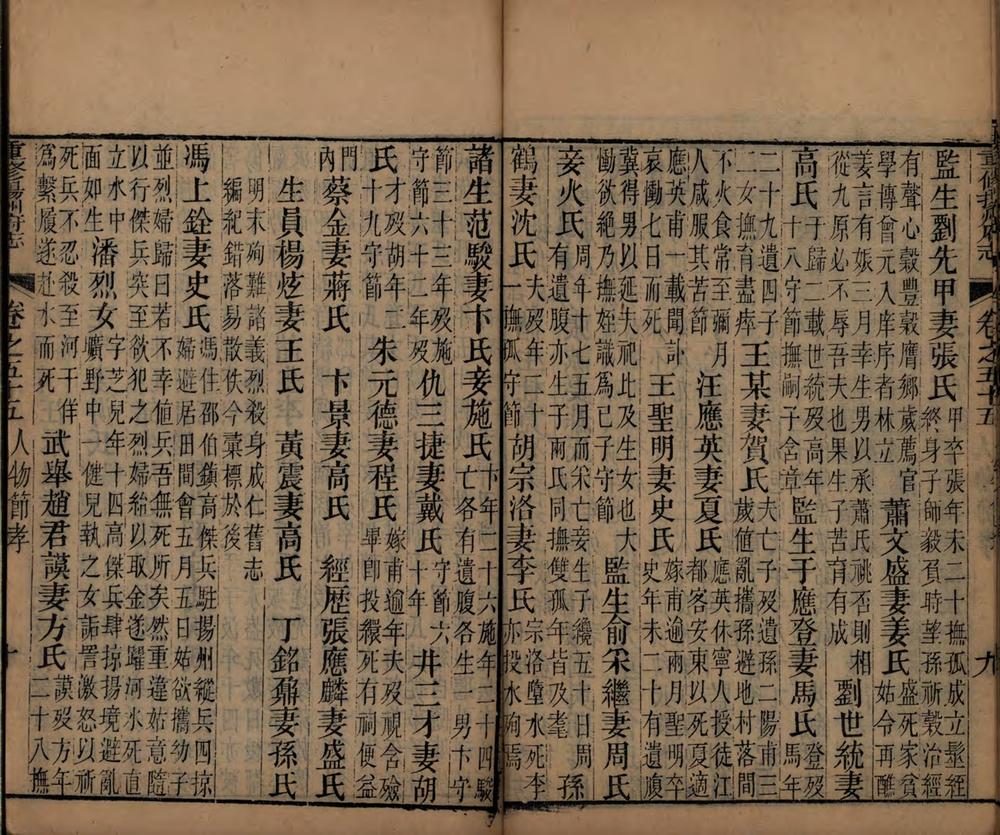 重修揚州府志 卷之五十五 九
監生劉先甲妻張氏 甲卒張年未二十撫孤成立髽絰 終身子師毅負時望孫祈穀治經
有聲心穀豐穀膺鄉歲薦官 學傳曾元入庠序者林立 蕭文盛妻姜氏 盛死家貧 姑令再醮
姜言有娠三月幸生男以承蕭氏祧否則相 從九原必不辱吾夫也果生子苦育有成 劉世統妻
高氏 于歸二載世統歿高年 十八守節撫嗣子含章 監生于應登妻馬氏 登歿 馬年
二十九遺四子 二女撫育盡瘁 王某妻賀氏 夫亡子歿遺孫二陽甫三 歲値亂攜孫避地村落間
不火食常至彌月 人咸服其苦節 汪應英妻夏氏 應英休寧人授徒江 都客安東以死夏適
應英甫一載聞訃 哀慟七日而死 王聖明妻史氏 嫁甫逾兩月聖明卒 史年未二十有遺腹
冀得男以延夫祀比及生女也大 慟欲絕乃撫姪識爲已子守節 監生俞宋繼妻周氏
妾火氏 周年十七五月而宋亡妾生子纔五十日周 有遺腹亦生子兩氏同撫雙孤年皆及耄 孫
鶴妻沈氏 夫歿年二十 一撫孤守節 胡宗洛妻李氏 宗洛墮水死李 亦投水殉焉
諸生范駿妻卞氏妾施氏 卞年二十六施年二十四駿 亡各有遺腹各生一男卞守
節三十三年歿施 守節六十二年歿 仇三捷妻戴氏 守節六 十年 井三才妻胡
氏 才歿胡年二 十九守節 朱元德妻程氏 嫁甫逾年夫歿視含殮 畢卽投繯死有祠便益
門 內 蔡金妻蔣氏 卞景妻高氏 經歷張應麟妻盛氏
生員楊炫妻王氏 黃震妻高氏 丁銘鼐妻孫氏
明末殉難諸義烈殺身成仁舊志 編紀錯落易散佚今彙標於後
馮上銓妻史氏 馮住邵伯鎮高傑兵駐揚州縱兵四掠 婦避居田間會五月五日姑欲攜幼子
並烈婦歸曰若不幸値兵吾無死所矣然重違姑意隨 以行傑兵突至欲犯之烈婦紿以取金遂躍河水死直
立水中 面如生 潘烈女 字芝兒年十四高傑兵肆掠揚境避亂 曠野中一健兒執之女詬詈激怒以祈
死兵不忍殺至河干佯 爲繫履遂赴水而死 武舉趙君謨妻方氏 謨歿方年 二十八撫
重修揚州府志 卷之五十五 人物節孝 十